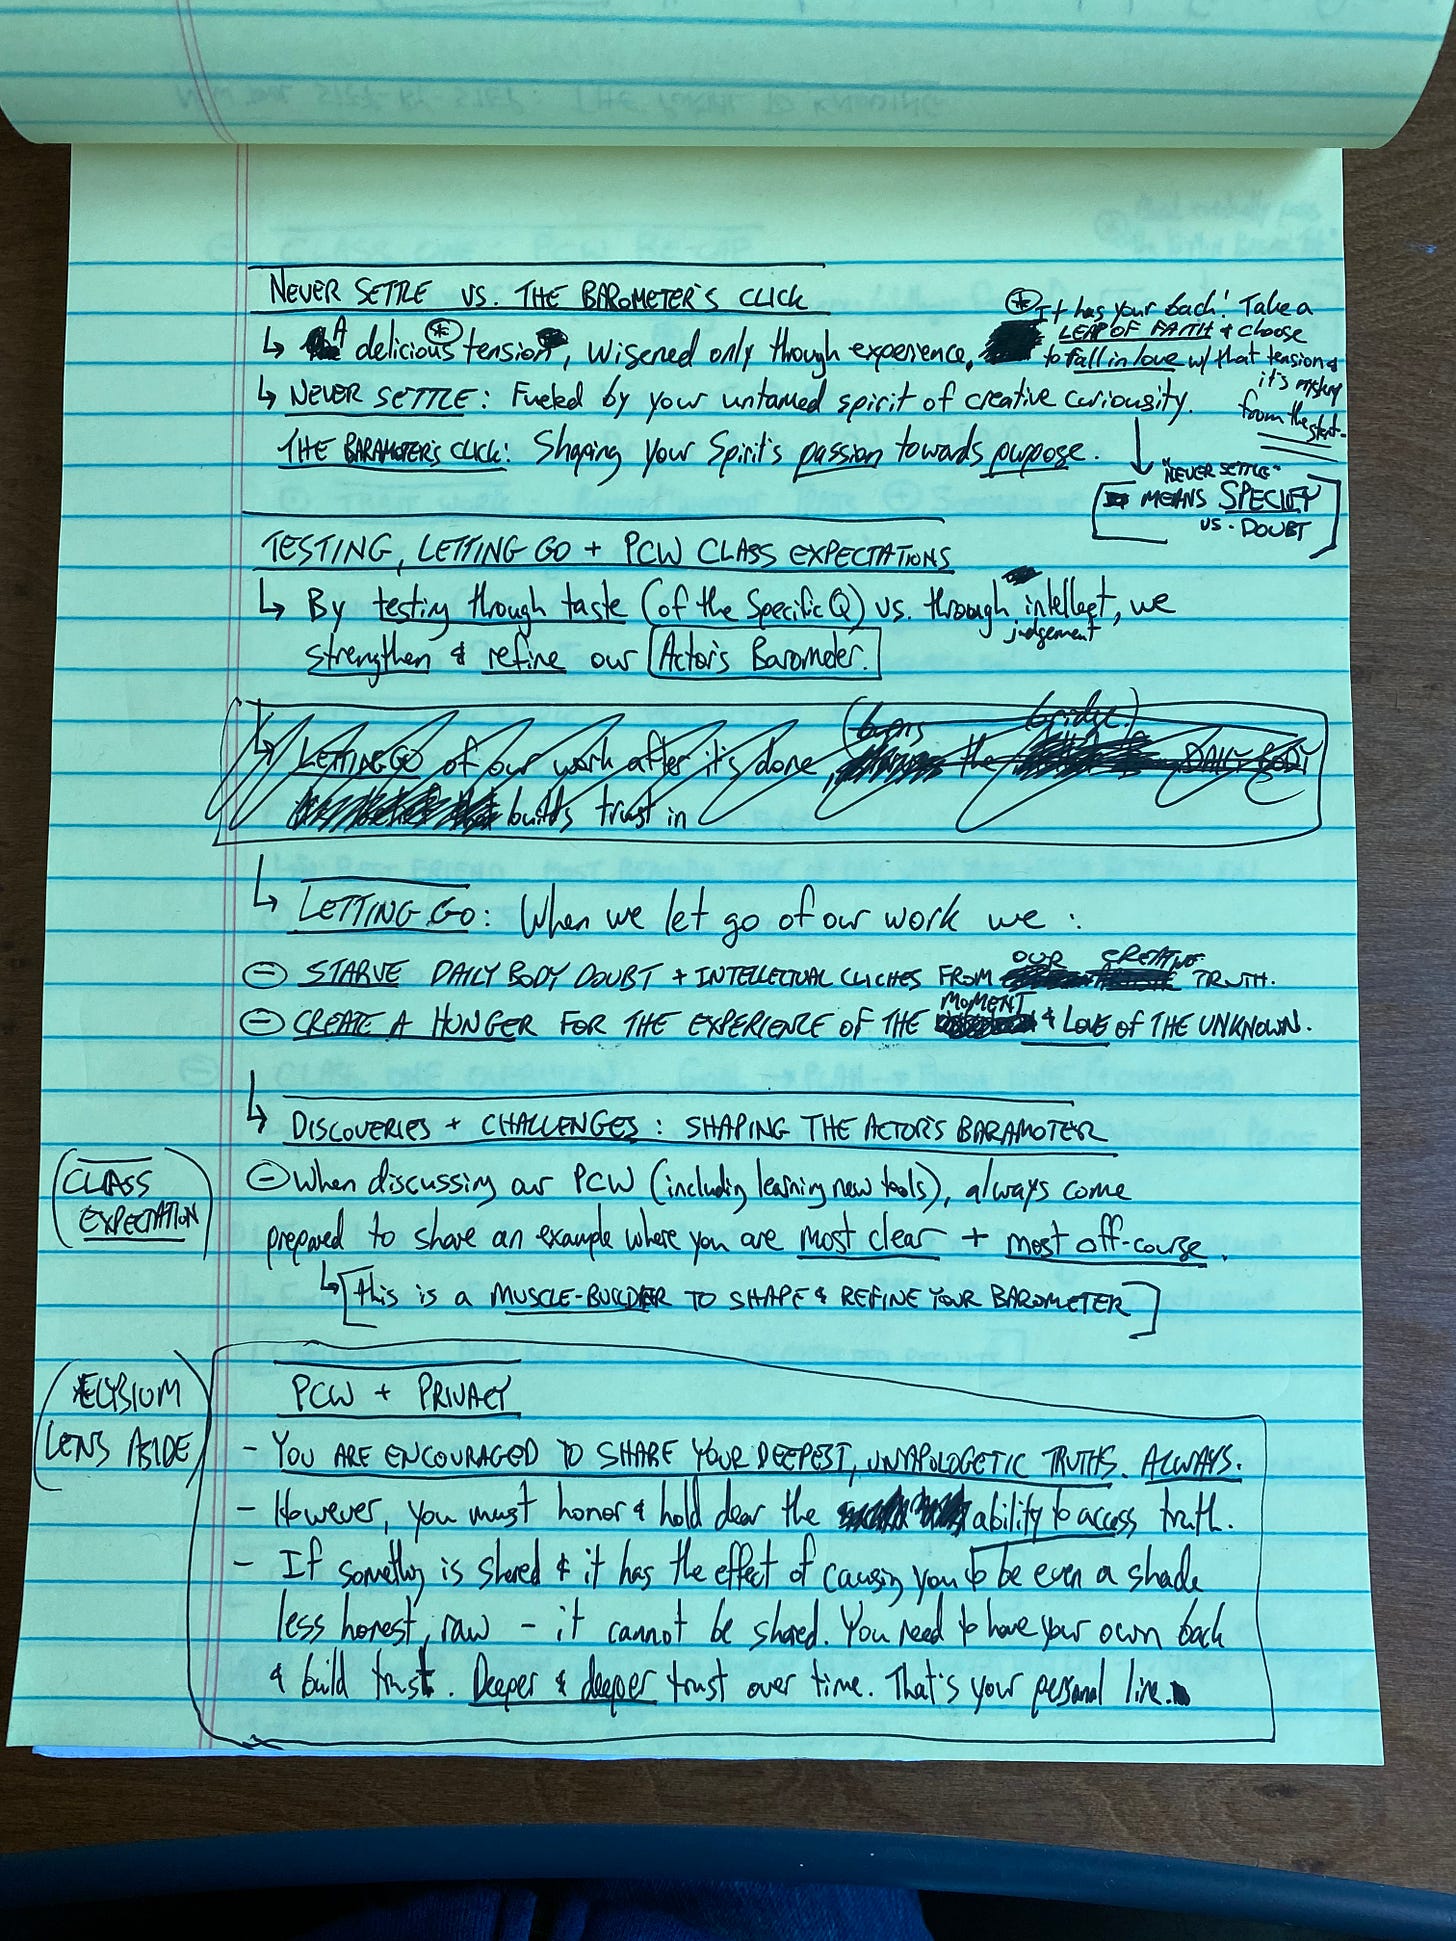 NEVER SETTLE VS. THE BAROMETER'S CLICK
↳ A delicious ⊛ tension, wisened only though experience.
⊛ It has your back! Take a
LEAP OF FAITH & choose
to fall in love w/ that tension &
it's mystery
from the start.
↳ NEVER SETTLE: Fueled by your untamed spirit of creative curiousity.
THE BARAMOTER'S CLICK: Shaping your Spirit's passion towards purpose.
"NEVER SETTLE"
[MEANS SPECIFY
VS. DOUBT]
TESTING, LETTING GO + PCW CLASS EXPECTATIONS
↳ By testing though taste (of the Specific Q) vs. through intellect, we
judgement
strengthen & refine our Actor's Barometer.
(burns bridge.)
↳ LETTING GO of our work after it's done the DAILY BODY
builds trust in
↳ LETTING GO: When we let go of our work we:
OUR CREATIVE
⊖ STARVE DAILY BODY DOUBT + INTELLECTUAL CLICHES FROM TRUTH.
MOMENT
⊖ CREATE A HUNGER FOR THE EXPERIENCE OF THE & LOVE OF THE UNKNOWN.
↳ DISCOVERIES + CHALLENGES: SHAPING THE ACTOR'S BARAMOTER
(CLASS
EXPECTATION)
⊖ When discussing our PCW (including learning new tools), always come
prepared to share an example where you are most clear + most off-course.
↳ [this is a MUSCLE-BUILDER TO SHAPE & REFINE YOUR BAROMETER]
(*ELYSIUM
LENS ASIDE)
PCW + PRIVACY
- YOU ARE ENCOURAGED TO SHARE YOUR DEEPEST, UNAPOLOGETIC TRUTHS. ALWAYS.
- However, you must honor & hold dear the ability to access truth.
- If something is shared & it has the effect of causing you to be even a shade
less honest, raw - it cannot be shared. You need to have your own back
& build trust. Deeper & deeper trust over time. That's your personal line.